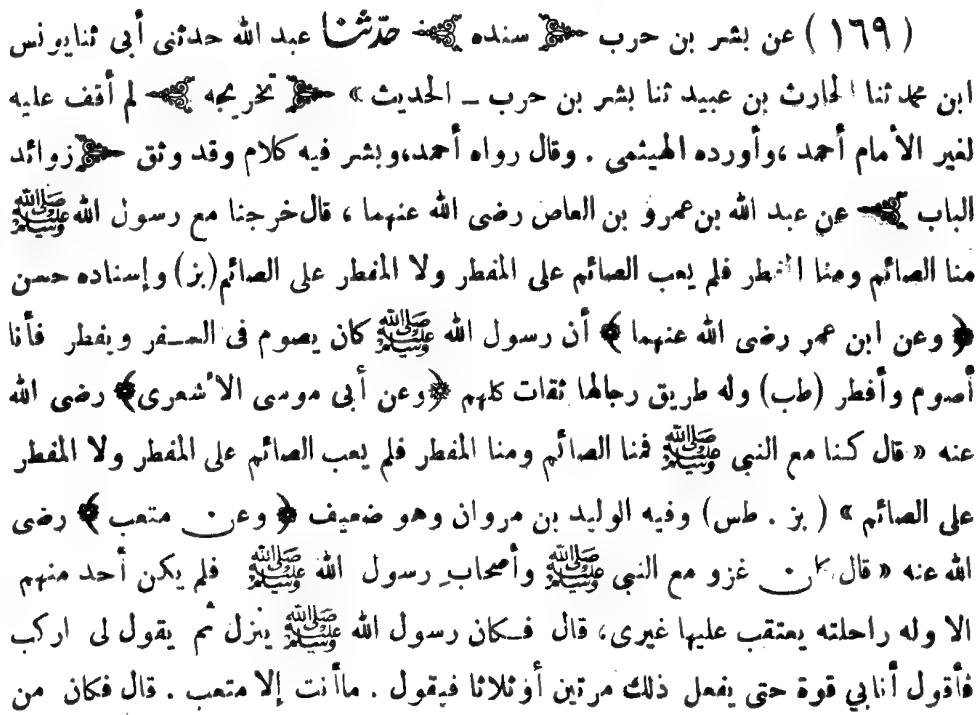 (١٦٩) عن بشر بن حرب ﴿ سنده ﴾ حدّثنا عبد الله حدثنى أبي ثنا يونس
ابن محمد ثنا الحارث بن عبيد ثنا بشر بن حرب ــ الحديث » ﴿ تخريجه ﴾ لم أقف عليه
لغير الأمام أحمد ،وأورده الهيثمى . وقال رواه أحمد،وبشر فيه كلام وقد وثق ﴿ زوائد
الباب ﴾ عن عبد الله بن عمرو بن العاص رضى الله عنهما ، قال خرجنا مع رسول الله ﷺ
منا الصائم ومنا المفطر فلم يعب الصائم على المفطر ولا المفطر على الصائم(بز) وإسناده حسن
﴿ وعن ابن عمر رضى الله عنهما ﴾ أن رسول الله ﷺ كان يصوم فى السـفر ويفطر فأنا
أصوم وأفطر (طب) وله طريق رجالها ثقات كلهم ﴿وعن أبى موسى الأشعرى﴾ رضى الله
عنه « قال كنا مع النبى ﷺ فمنا الصائم ومنا المفطر فلم يعب الصائم على المفطر ولا المفطر
على الصائم » ( بز . طس) وفيه الوليد بن مروان وهو ضعيف ﴿ وعن متعب ﴾ رضى
الله عنه « قال كان غزو مع النبى ﷺ وأصحاب رسول الله ﷺ فلم يكن أحد منهم
الا وله راحلته يعتقب عليها غيرى، قال فـكان رسول الله ﷺ ينزل ثم يقول لى اركب
فأقول أنابي قوة حتى يفعل ذلك مرتين أوثلاثا فيقول . ماأنت إلا متعب . قال فكان من